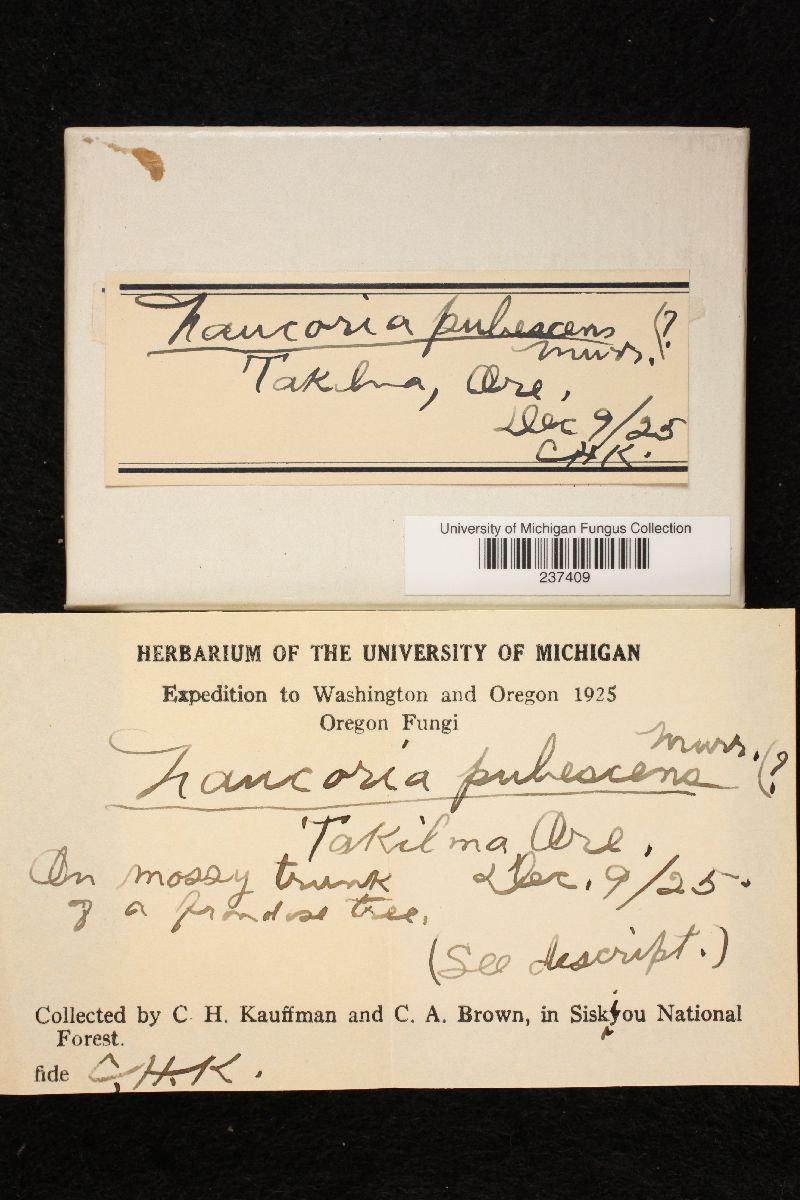 Naucoria pubescens
Murr. (?
Takilma, Ore.
Dec 9/25
C.H.K.
University of Michigan Fungus Collection
237409
HERBARIUM OF THE UNIVERSITY OF MICHIGAN
Expedition to Washington and Oregon 1925
Oregon Fungi
Naucoria pubescens Murr. (?
Takilma, Ore.
On mossy trunk Dec. 9/25.
of a frondose tree.
(See descript.)
Collected by C. H. Kauffman and C. A. Brown, in Siskiyou National
Forest.
fide C.H.K.